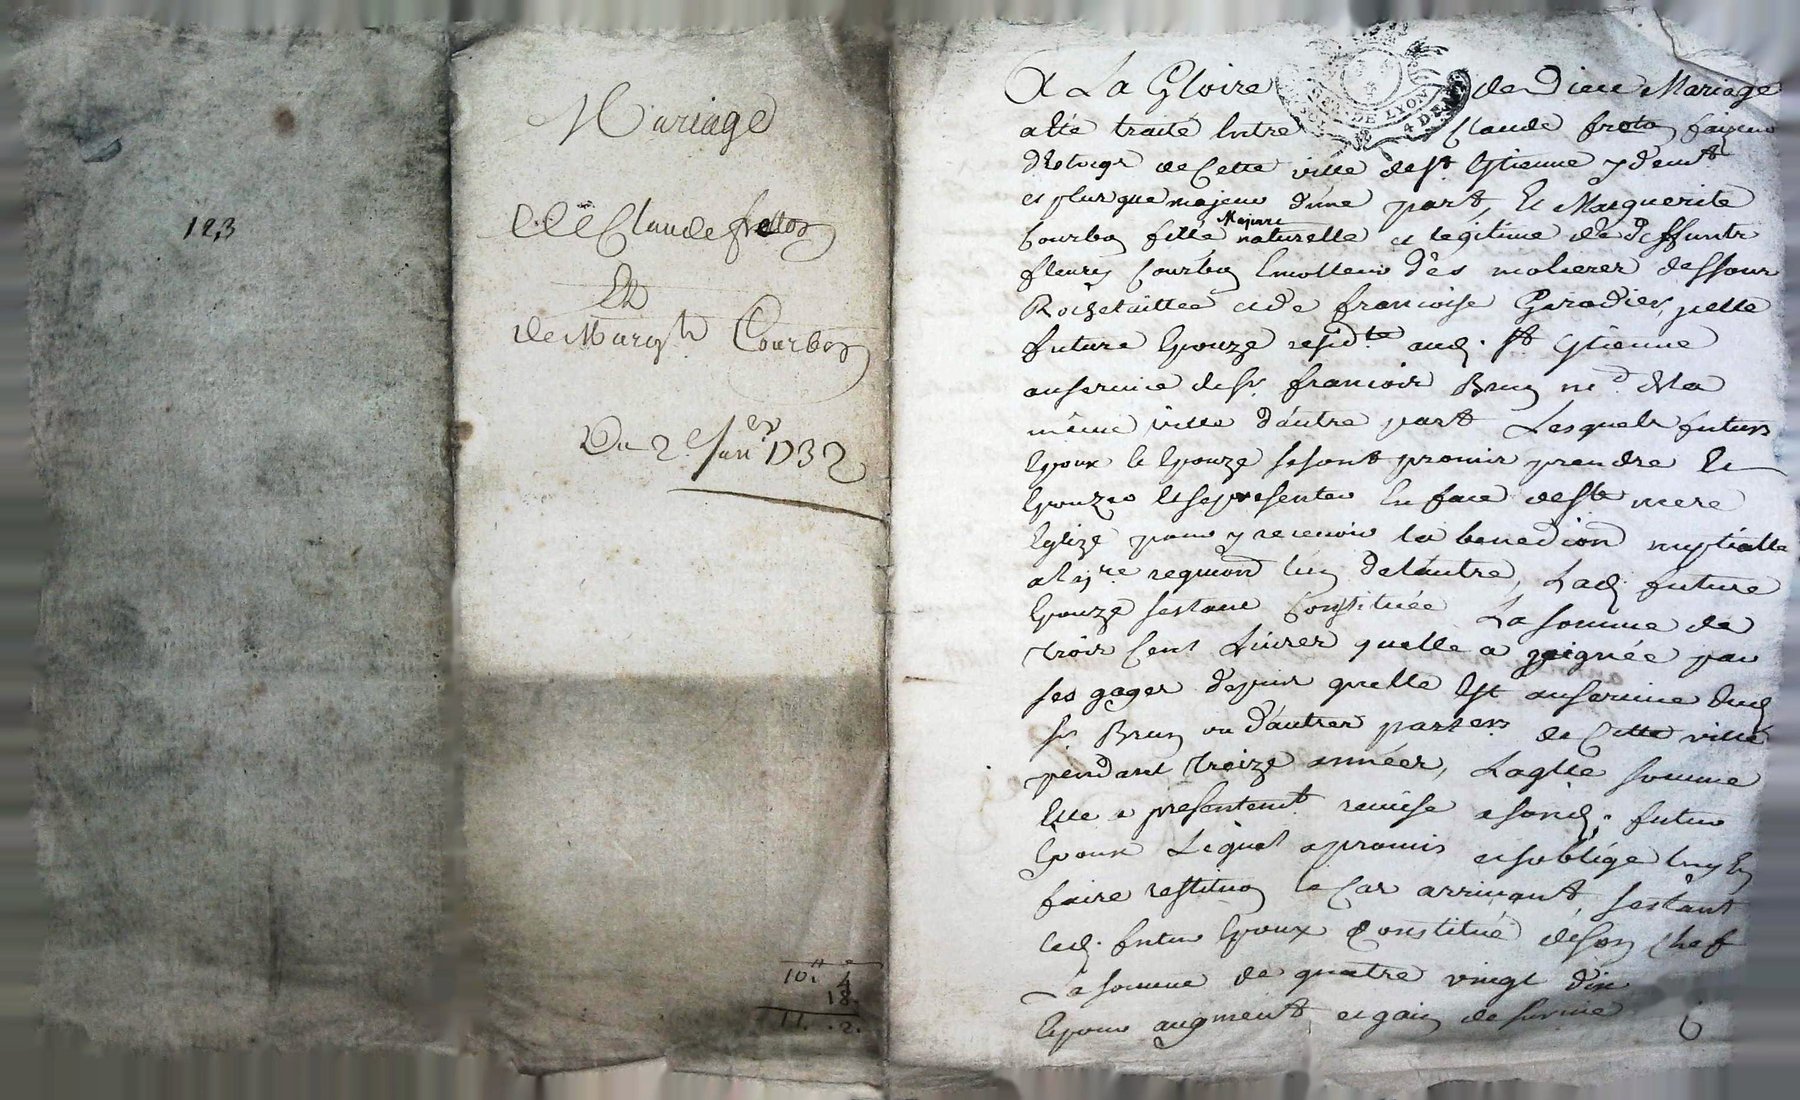 123
Mariage
de Claude frotton
Et
de Margte Courbon
Du 2e Janer 1732
10. 4
18.
11. .2.
GEN DE LYON
4 DEN
A La Gloire de Dieu Mariage
a été traité Entre Claude froton faizeur
de cette ville de st Etienne y demt
et plus que majeur d'une part, Et Marguerite
Majeure
Courbon fille naturelle et legitime de deffunts
fleury Courbon Emolleur des molieres dessous
Rochetaillée et de francoise Girodier, jelle
future Epouze residte aud. st Etienne
au service de sr. francois Brun md de la
même ville d'autre part Lesquels futurs
Epoux et Epouze se sont promis prendre Et
Epouzer Et se presenter En face de ste mere
Eglize pour y recevoir la benediction nuptialle
a la 1re requion l'un de l'autre, Lad. future
Epouze s'estant Constituée La somme de
trois Cent Livres quelle a gaignée par
ses gages depuis quelle Est au service dud.
sr Brun ou d'autres parters de Cette ville
pendant treize années, Laqlle somme
Elle a presentemt remise a sond. futur
Epoux Lequel a promis et s'oblige luy En
faire restituon le Cas arrivant, s'estant
led. futur Epoux Constitué de son Chef
La somme de quatre vingt dix
Et pour augment, et gain de survie